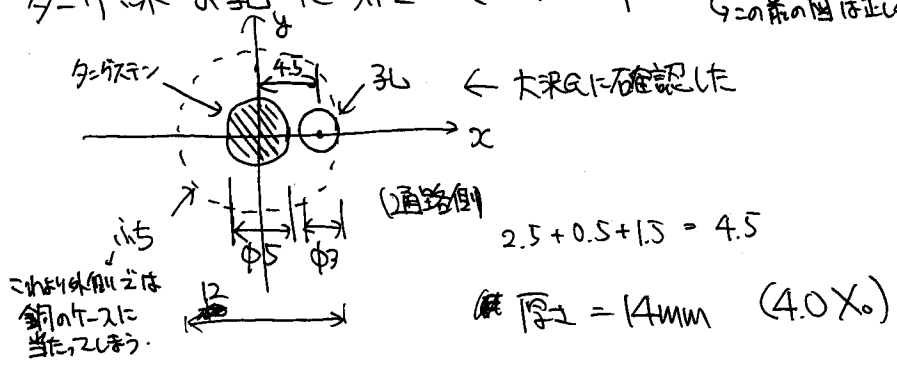 ターゲット
この前の図は正し
y
4.5
タングステン
孔
← 大沢氏に確認した
x
(通路側)
ふち
φ5
φ3
2.5 + 0.5 + 1.5 = 4.5
これより外側では
銅のケースに
当たってしまう.
12
厚さ = 14mm (4.0 X₀)